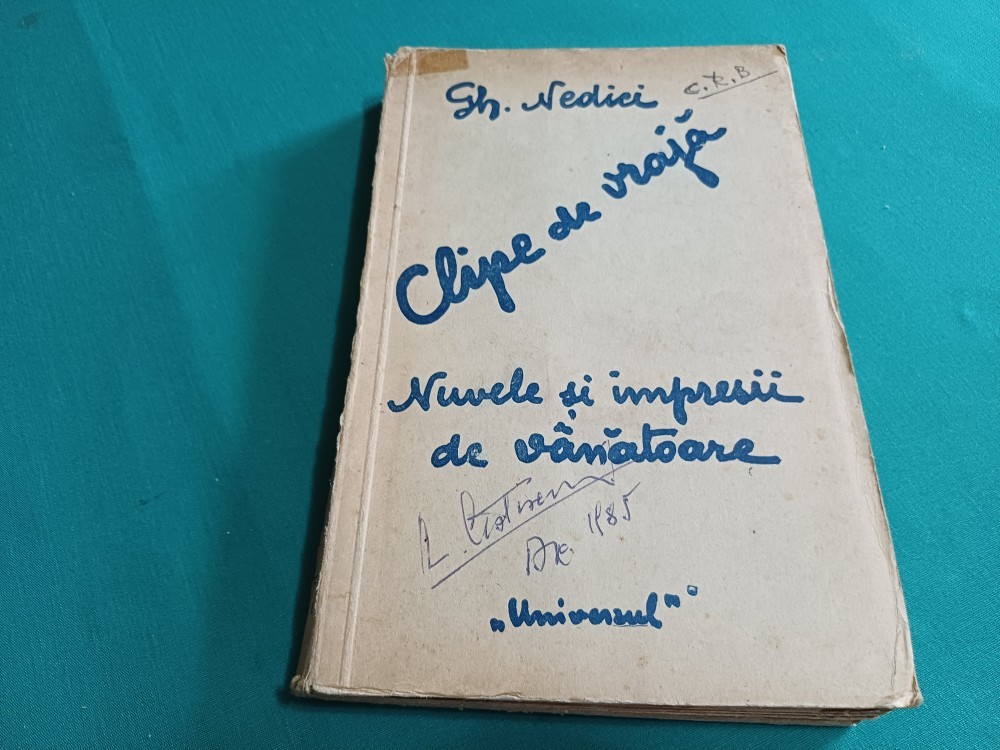 Gh. Nedici
C.R.B
Clipe de vrajă
Nuvele și impresii
de vânătoare
1985
„Universul”